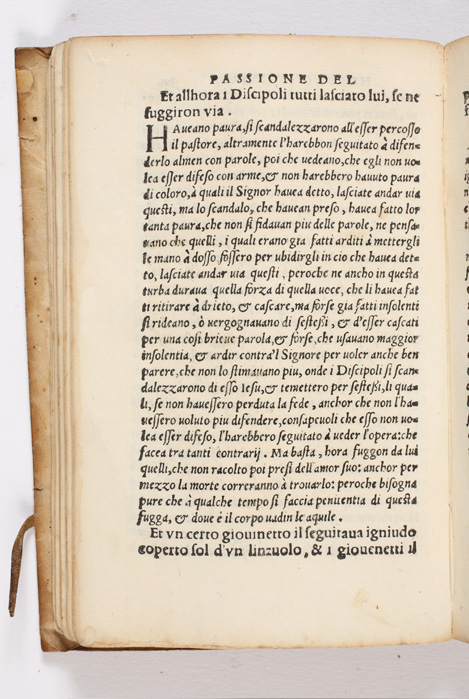 PASSIONE DEL
Et allhora i Discipoli tutti lasciato lui, se ne
fuggiron via.
HAueano paura, si scandalezzarono all'esser percosso
il pastore, altramente l'harebbon seguitato à difen=
derlo almen con parole, poi che uedeano, che egli non uo=
lea esser difeso con arme, & non harebbero hauuto paura
di coloro, à quali il Signor hauea detto, lasciate andar uia
questi, ma lo scandalo, che hauean preso, hauea fatto lor
tanta paura, che non si fidauan piu delle parole, ne pensa=
uano che quelli, i quali erano gia fatti arditi à mettergli
le mano à dosso, fossero per ubidirgli in cio che hauea det=
to, lasciate andar uia questi, peroche ne ancho in questa
turba duraua quella forza di quella uoce, che li hauea fat
ti ritirare à drieto, & cascare, ma forse gia fatti insolenti
si rideano, ò uergognauano di sestessi, & d'esser cascati
per una cosi brieue parola, & forse, che usauano maggior
insolentia, & ardir contra'l Signore per uoler anche ben
parere, che non lo stimauano piu, onde i Discipoli si scan=
dalezzarono di esso Iesu, & temettero per sestessi, li qua=
li, se non hauessero perduta la fede, anchor che non l'ha=
uessero uoluto piu difendere, consapeuoli che esso non uo=
lea esser difeso, l'harebbero seguitato à ueder l'opera: che
facea tra tanti contrarij. Ma basta, hora fuggon da lui
quelli, che non racolto poi presi dell'amor suo: anchor per
mezzo la morte correranno à trouarlo: peroche bisogna
pure che à qualche tempo si faccia penitentia di questa
fugga, & doue è il corpo uadin le aquile.
Et vn certo giouinetto il seguitaua igniudo
coperto sol d'vn linzuolo, & i giouenetti il